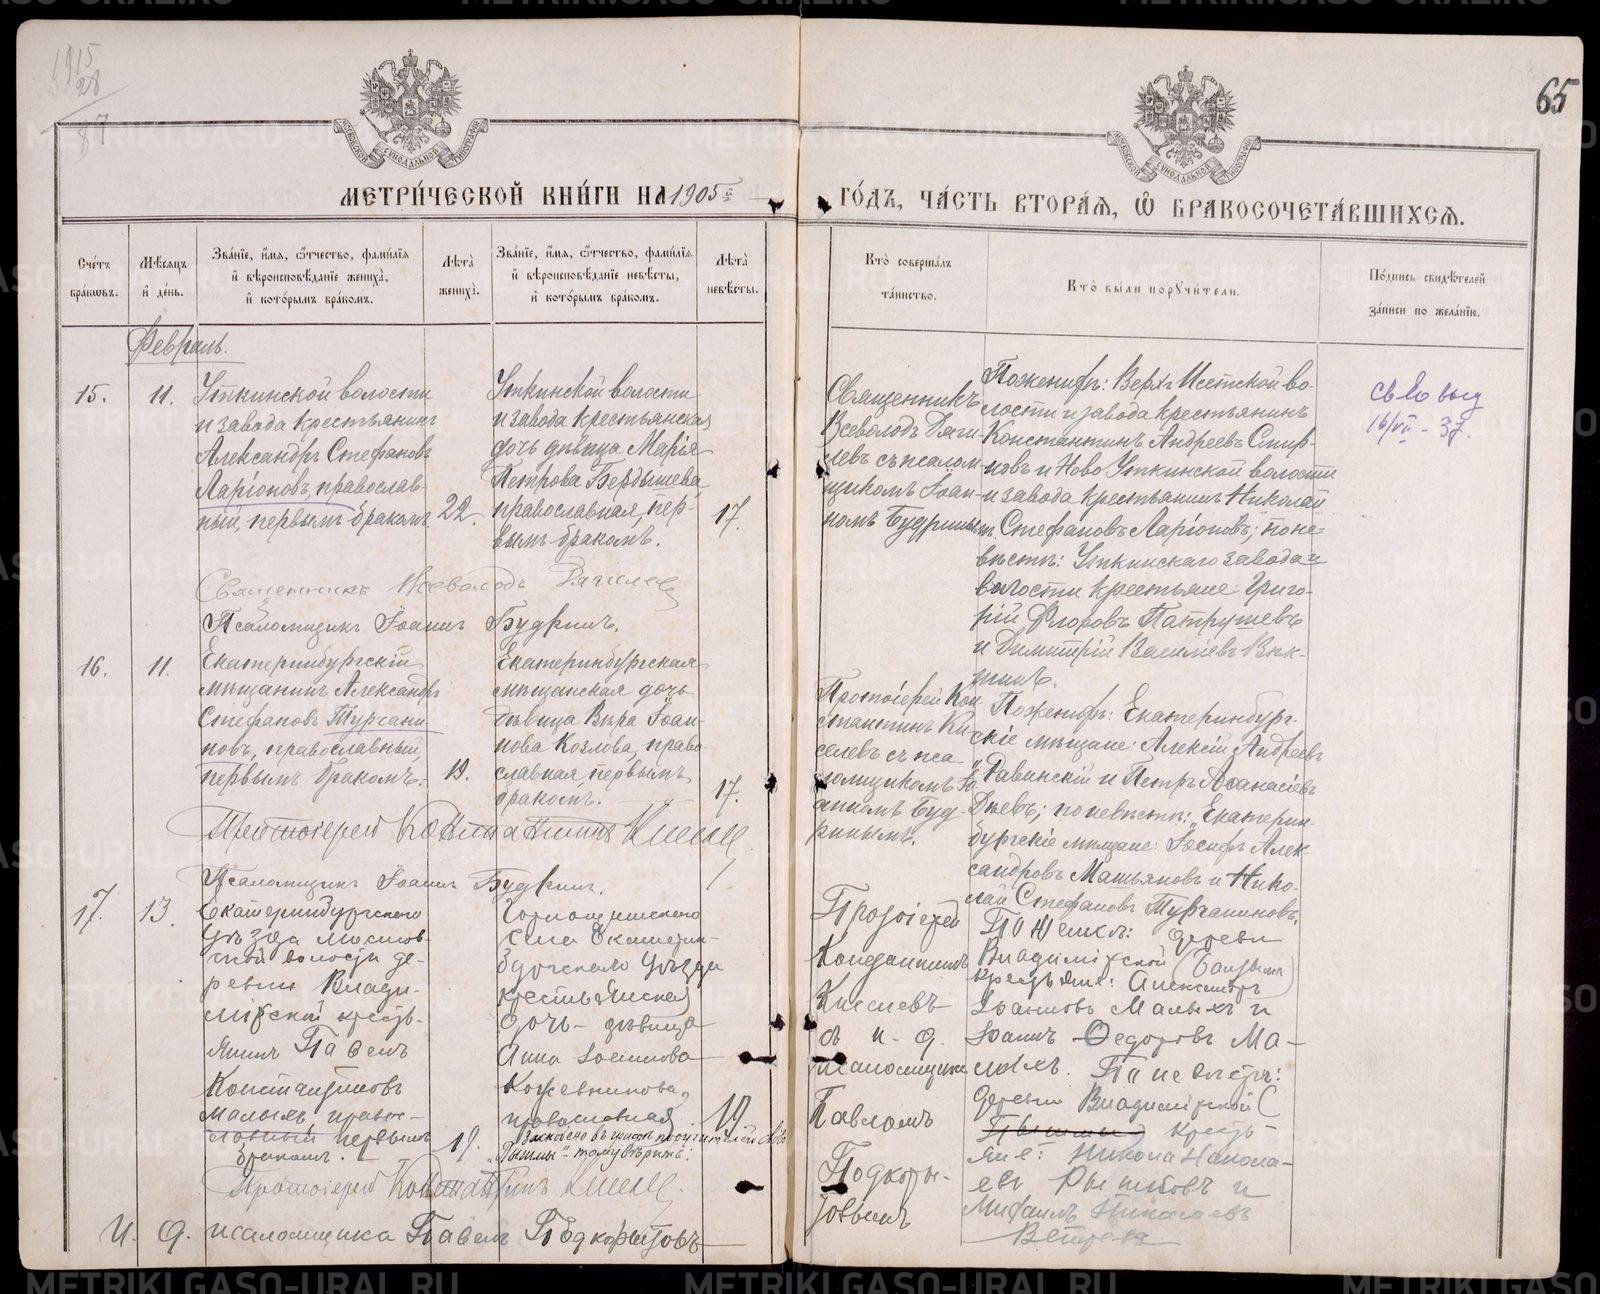 1915
28
87
65
МЕТРИ́ЧЕСКОЙ КНИ́ГИ НА 1905 й
ГО́ДЪ, ЧА́СТЬ ВТОРА́Я, Ѽ БРАКОСОЧЕТА́ВШИХСЯ.
Сче́тъ бра́ковъ.
Мѣ́сяцъ и де́нь.
Зва́нїе, и́мя, ѻ҆́тчество, фамилїя
и҆ вѣроисповѣ́данїе жениха̀,
и҆ кото́рымъ бра́комъ.
Лѣта̀ жениха̀.
Зва́нїе, и́мя, ѻ҆́тчество, фамилїя
и҆ вѣроисповѣ́данїе невѣ́сты,
и҆ кото́рымъ бра́комъ.
Лѣта̀ невѣ́сты.
Кто̀ соверша́лъ
та́инство.
Кто̀ бы́ли порꙋчи́тели.
По́дпись свидѣ́телей
за́писи по жела́нїю.
Февраль.
15.
11.
Уткинской волости
и завода крестьянинъ
Александръ Стефановъ
Ларіоновъ, православ-
ный, первымъ бракомъ.
22.
Уткинской волости
и завода крестьянская
дочь дѣвица Марія
Петрова Бердышева
православная, пер-
вымъ бракомъ.
17.
Священникъ
Всеволодъ Дяги-
левъ съ псалом-
щикомъ Іоан-
номъ Будринымъ
По женихѣ: Верхъ Исетской во-
лости и завода крестьянинъ
Константинъ Андреевъ Смир-
новъ и Ново Уткинской волости
и завода крестьянинъ Николай
Стефановъ Ларіоновъ; по не-
вѣстѣ: Уткинскаго завода и
волости крестьяне: Григо-
рій Егоровъ Патрушевъ
и Димитрій Василіевъ
16/VII - 37.
Священникъ Всеволодъ Дягилев
Псаломщикъ Іоаннъ Будринъ.
16.
11.
Екатеринбургскій
мѣщанинъ Александръ
Стефановъ Турчани-
новъ, православный,
первымъ бракомъ.
19.
Екатеринбургская
мѣщанская дочь
дѣвица Вѣра Іоан-
нова Козлова, право-
славная, первымъ
бракомъ.
17.
Протоіерей Кон
стантинъ Ки-
селевъ съ пса-
ломщикомъ Іо-
анномъ Буд-
ринымъ.
По женихѣ: Екатеринбург-
скіе мѣщане: Алексій Андреевъ
и Петръ Аѳанасіевъ
по невѣстѣ: Екатерин-
бургскіе мѣщане: Іосифъ Алек-
сандровъ и Нико-
лай Стефановъ Турчаниновъ.
Протоіерей Константинъ Киселев
Псаломщикъ Іоаннъ Будринъ.
17.
13.
Екатеринбургскаго
Уѣзда
волости де-
ревни Влади-
мірской кресть-
янинъ Павелъ
Константиновъ
Малыхъ право-
славный первымъ
бракомъ.
19.
села Екатерин-
бургскаго Уѣзда
крестьянская
дочь - дѣвица
Анна
Кожевникова,
православная
19.
Протоіерей Константинъ Киселев.
И. д. псаломщика Павелъ Подкорытовъ
Протоіерей
Константинъ
Киселевъ
съ и. д.
псаломщика
Павломъ
Подкоры-
товымъ
По женихѣ: деревни
Владимірской
крестьяне: Александръ
Іоанновъ Малыхъ и
Іоаннъ Ѳедоровъ Ма-
лыхъ. По невѣстѣ:
Деревни Владимірской
кресть-
яне: Никола Никола-
евъ и
Михаилъ Николаевъ